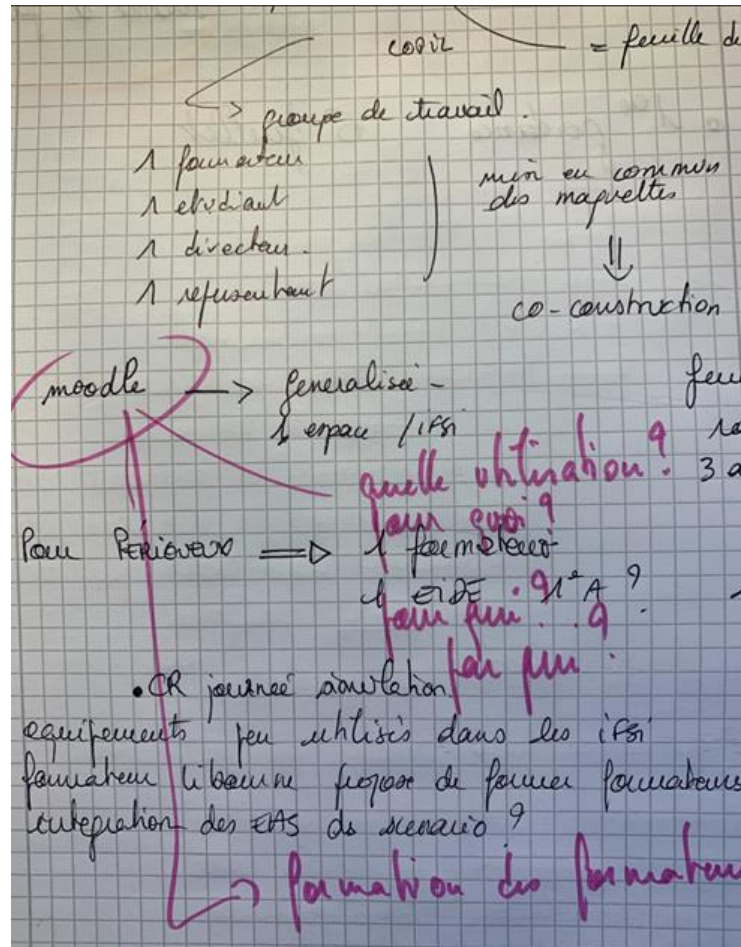 COPIL = feuille de
-> groupe de travail.
1 formateur
1 etudiant
1 directeur.
1 representant
mise en commun
des maquettes
⇓
co-construction
moodle -> generalisée -
1 espace / IFSI
feu
quelle utilisation ?
3 a
pour quoi ?
Pour PÉRIGUEUX => 1 formateur
1 EIDE 1°A ?
pour qui ?
par qui ?
• CR journée simulation
equipements peu utilisés dans les ifsi
formateur libourne propose de former formateurs
integration des EAS ds scenario ?
-> formation des formateur